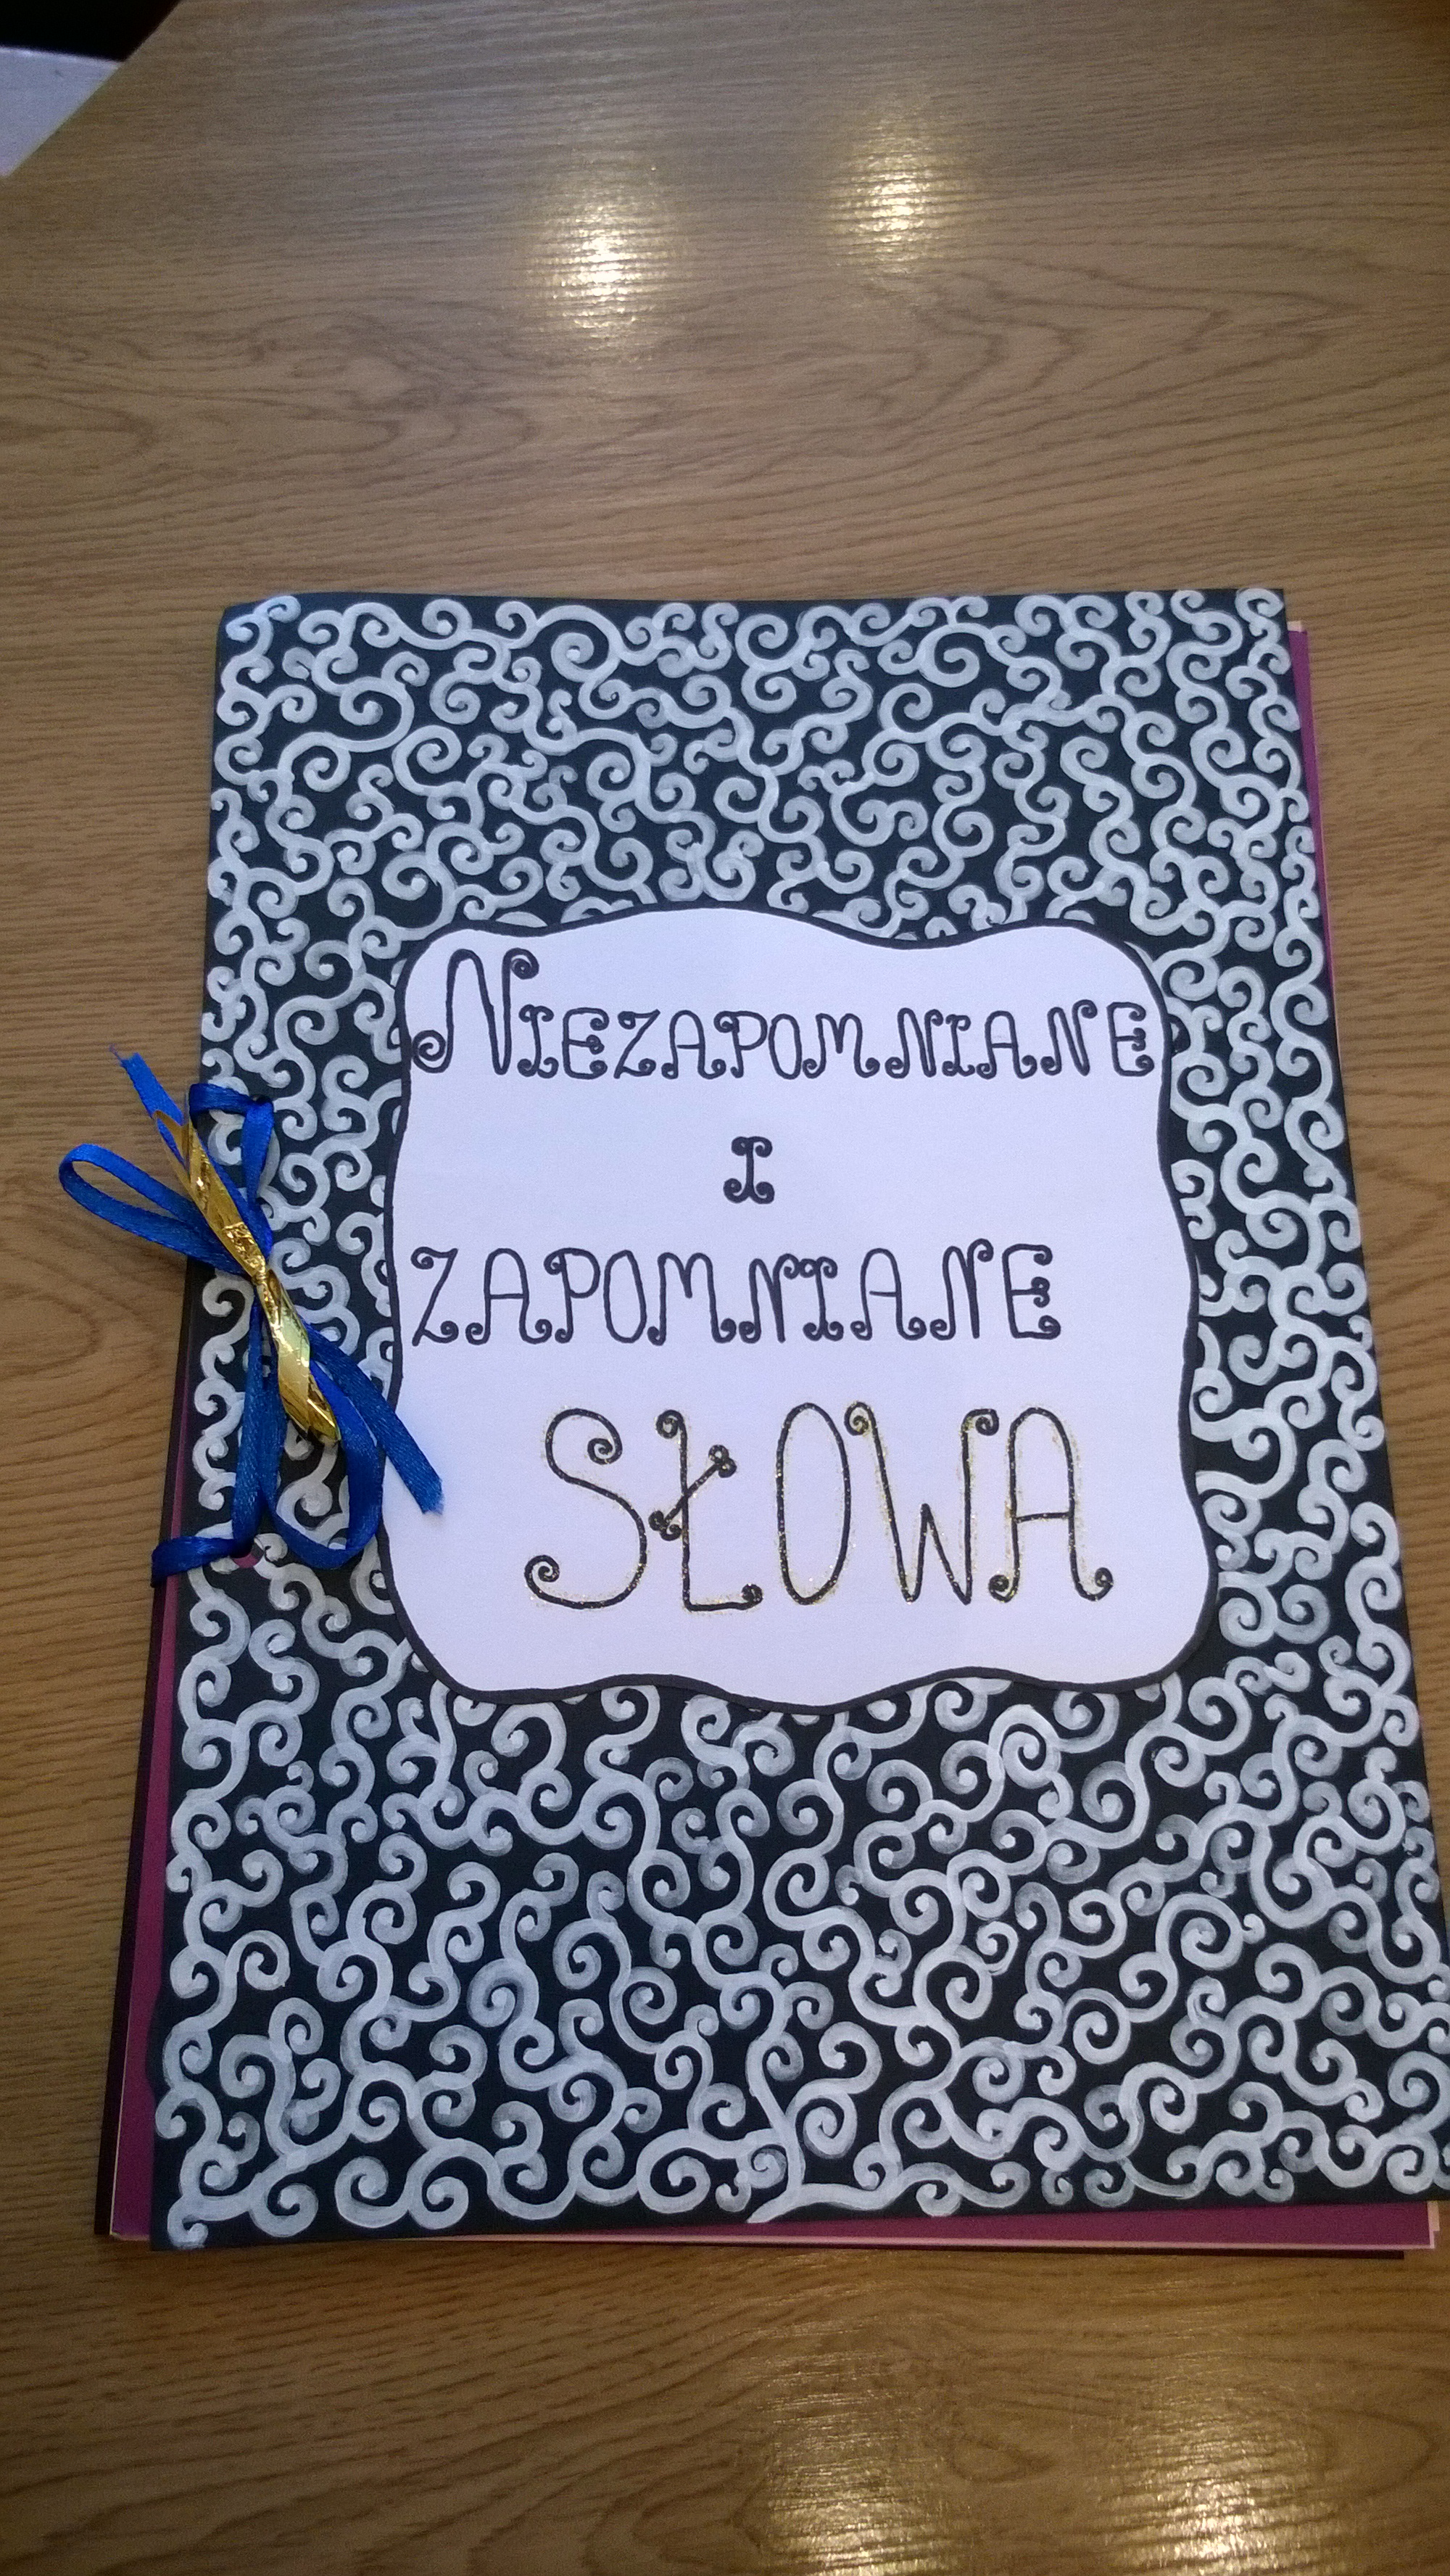 NIEZAPOMNIANE
I
ZAPOMNIANE
SŁOWA